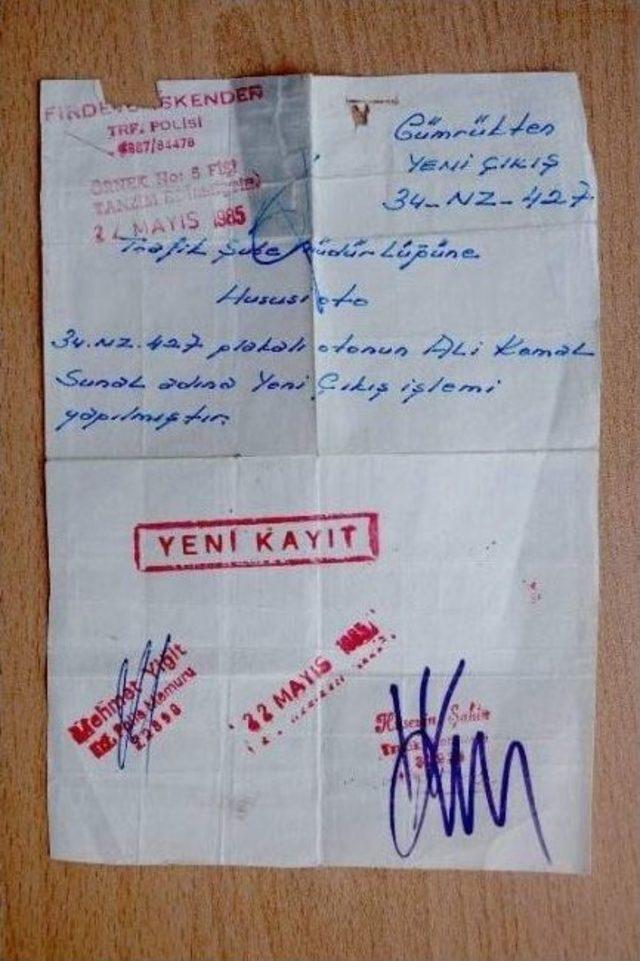 FİRDEVS İSKENDER
TRF. POLİSİ
6867/84478
ÖRNEK No: 5 Fişi
TANZİM
22 MAYIS 1985
Gümrükten
YENİ ÇIKIŞ
34-NZ-427
Trafik Şube Müdürlüğüne
Hususi oto
34.NZ.427 plakalı otonun Ali Kemal
Sunal adına Yeni Çıkış işlemi
yapılmıştır.
YENİ KAYIT
Mehmet Yiğit
Polis Memuru
22898
22 MAYIS 1985
Hüseyin Şahin